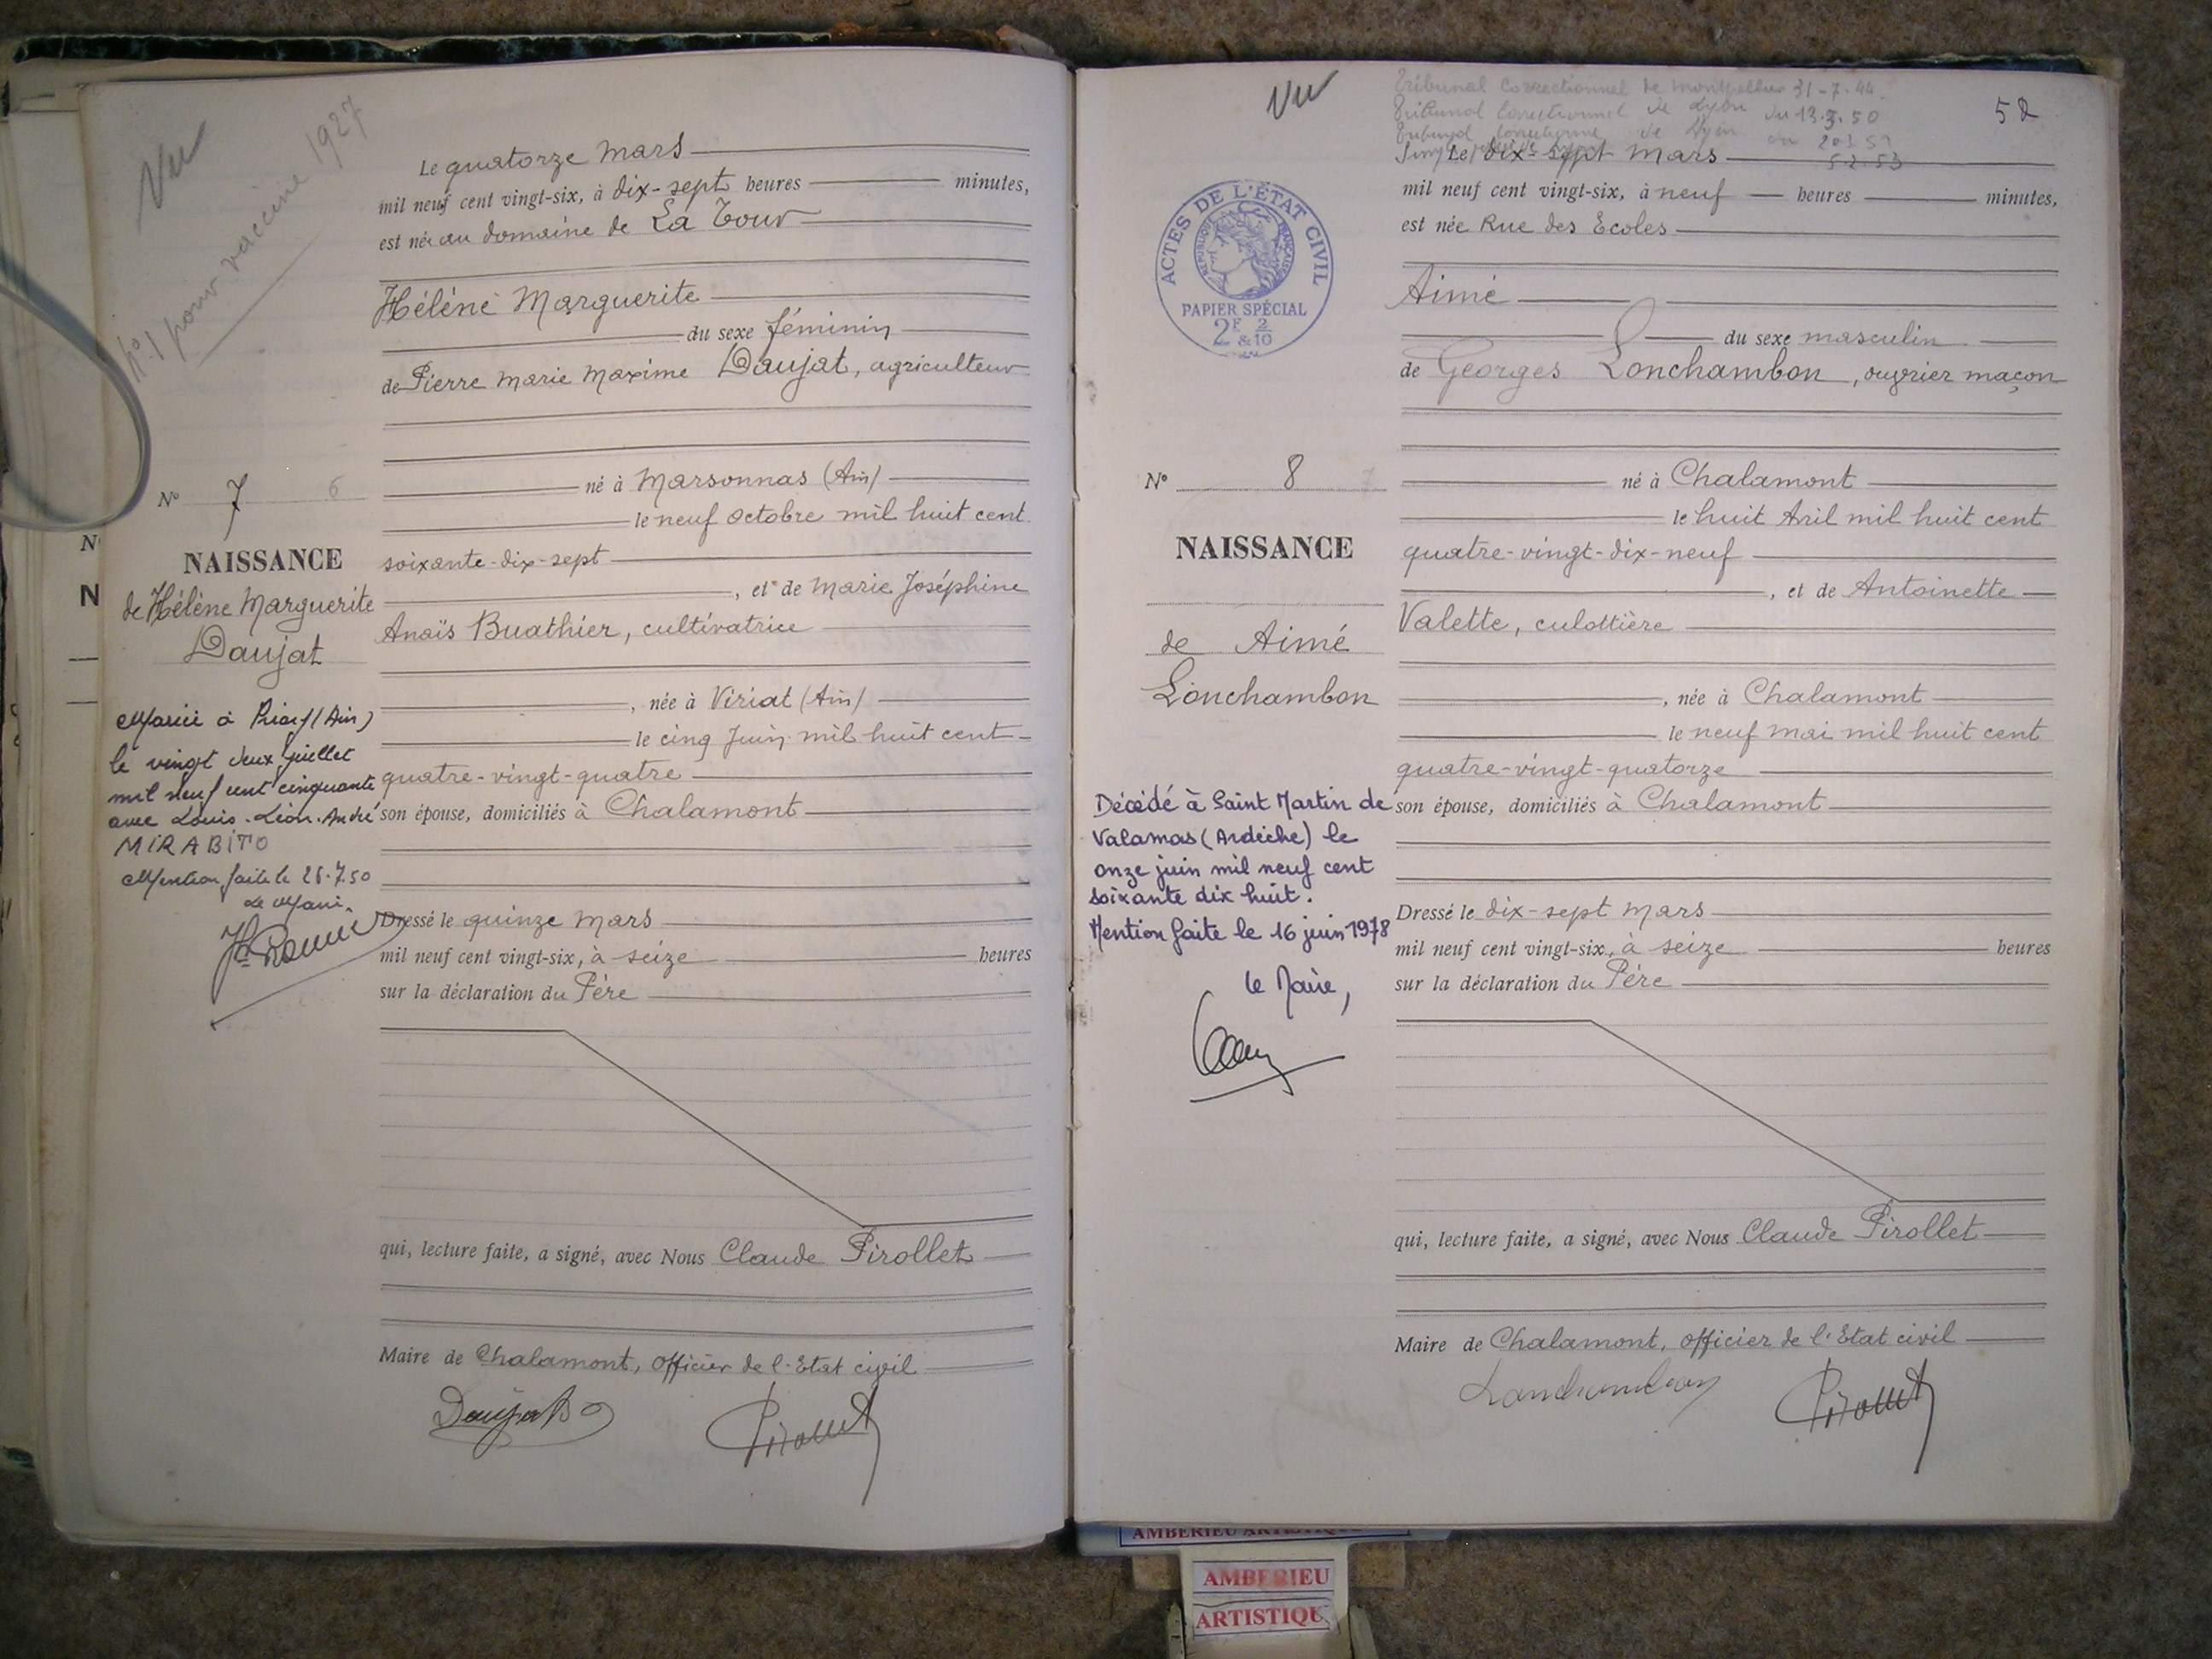 Vu
N° 1 pour vaccine 1927
Le quatorze Mars
mil neuf cent vingt-six, à dix-sept heures minutes,
est née au domaine de La Tour
Hélène Marguerite
du sexe féminin
de Pierre Marie Maxime Daujat, agriculteur
né à Marsonnas (Ain)
le neuf Octobre mil huit cent
soixante-dix-sept
, et de Marie Joséphine
Anaïs Buathier, cultivatrice
, née à Viriat (Ain)
le cinq Juin mil huit cent
quatre-vingt-quatre
son épouse, domiciliés à Chalamont
Dressé le quinze Mars
mil neuf cent vingt-six, à seize heures
sur la déclaration du Père
qui, lecture faite, a signé, avec Nous Claude Pirollet
Maire de Chalamont, Officier de l'Etat civil
Daujat
Pirollet
N° 7 6
NAISSANCE
de Hélène Marguerite
Daujat
Mariée à (Ain)
le vingt deux juillet
mil neuf cent cinquante
avec Louis-Léon-André
MIRABITO
Mention faite le 26-7.50
Le Maire
N
N
Vu
Tribunal Correctionnel de Montpellier 31-7-44.
Tribunal Correctionnel de Lyon du 13.3.50
Tribunal Correctionnel de Lyon du
52.53
52
Le dix-sept Mars
mil neuf cent vingt-six, à neuf heures minutes,
est née Rue des Ecoles
Aimé
du sexe masculin
de Georges Lonchambon, ouvrier maçon
né à Chalamont
le huit Avril mil huit cent
quatre-vingt-dix-neuf
, et de Antoinette
Valette, culottière
, née à Chalamont
le neuf Mai mil huit cent
quatre-vingt-quatorze
son épouse, domiciliés à Chalamont
Dressé le dix-sept Mars
mil neuf cent vingt-six, à seize heures
sur la déclaration du Père
qui, lecture faite, a signé, avec Nous Claude Pirollet
Maire de Chalamont, Officier de l'Etat civil
Lonchambon
Pirollet
ACTES DE L'ÉTAT CIVIL
RÉPUBLIQUE FRANÇAISE
PAPIER SPÉCIAL
2F & 2/10
N° 8
NAISSANCE
de Aimé
Lonchambon
Décédé à Saint Martin de
Valamas (Ardèche) le
onze juin mil neuf cent
soixante dix huit.
Mention faite le 16 juin 1978
le Maire,
AMBERIEU
AMBERIEU
ARTISTIQU